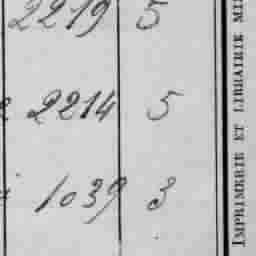 2219 5
2214 5
1039 3
IMPRIMERIE ET LIBRAIRIE